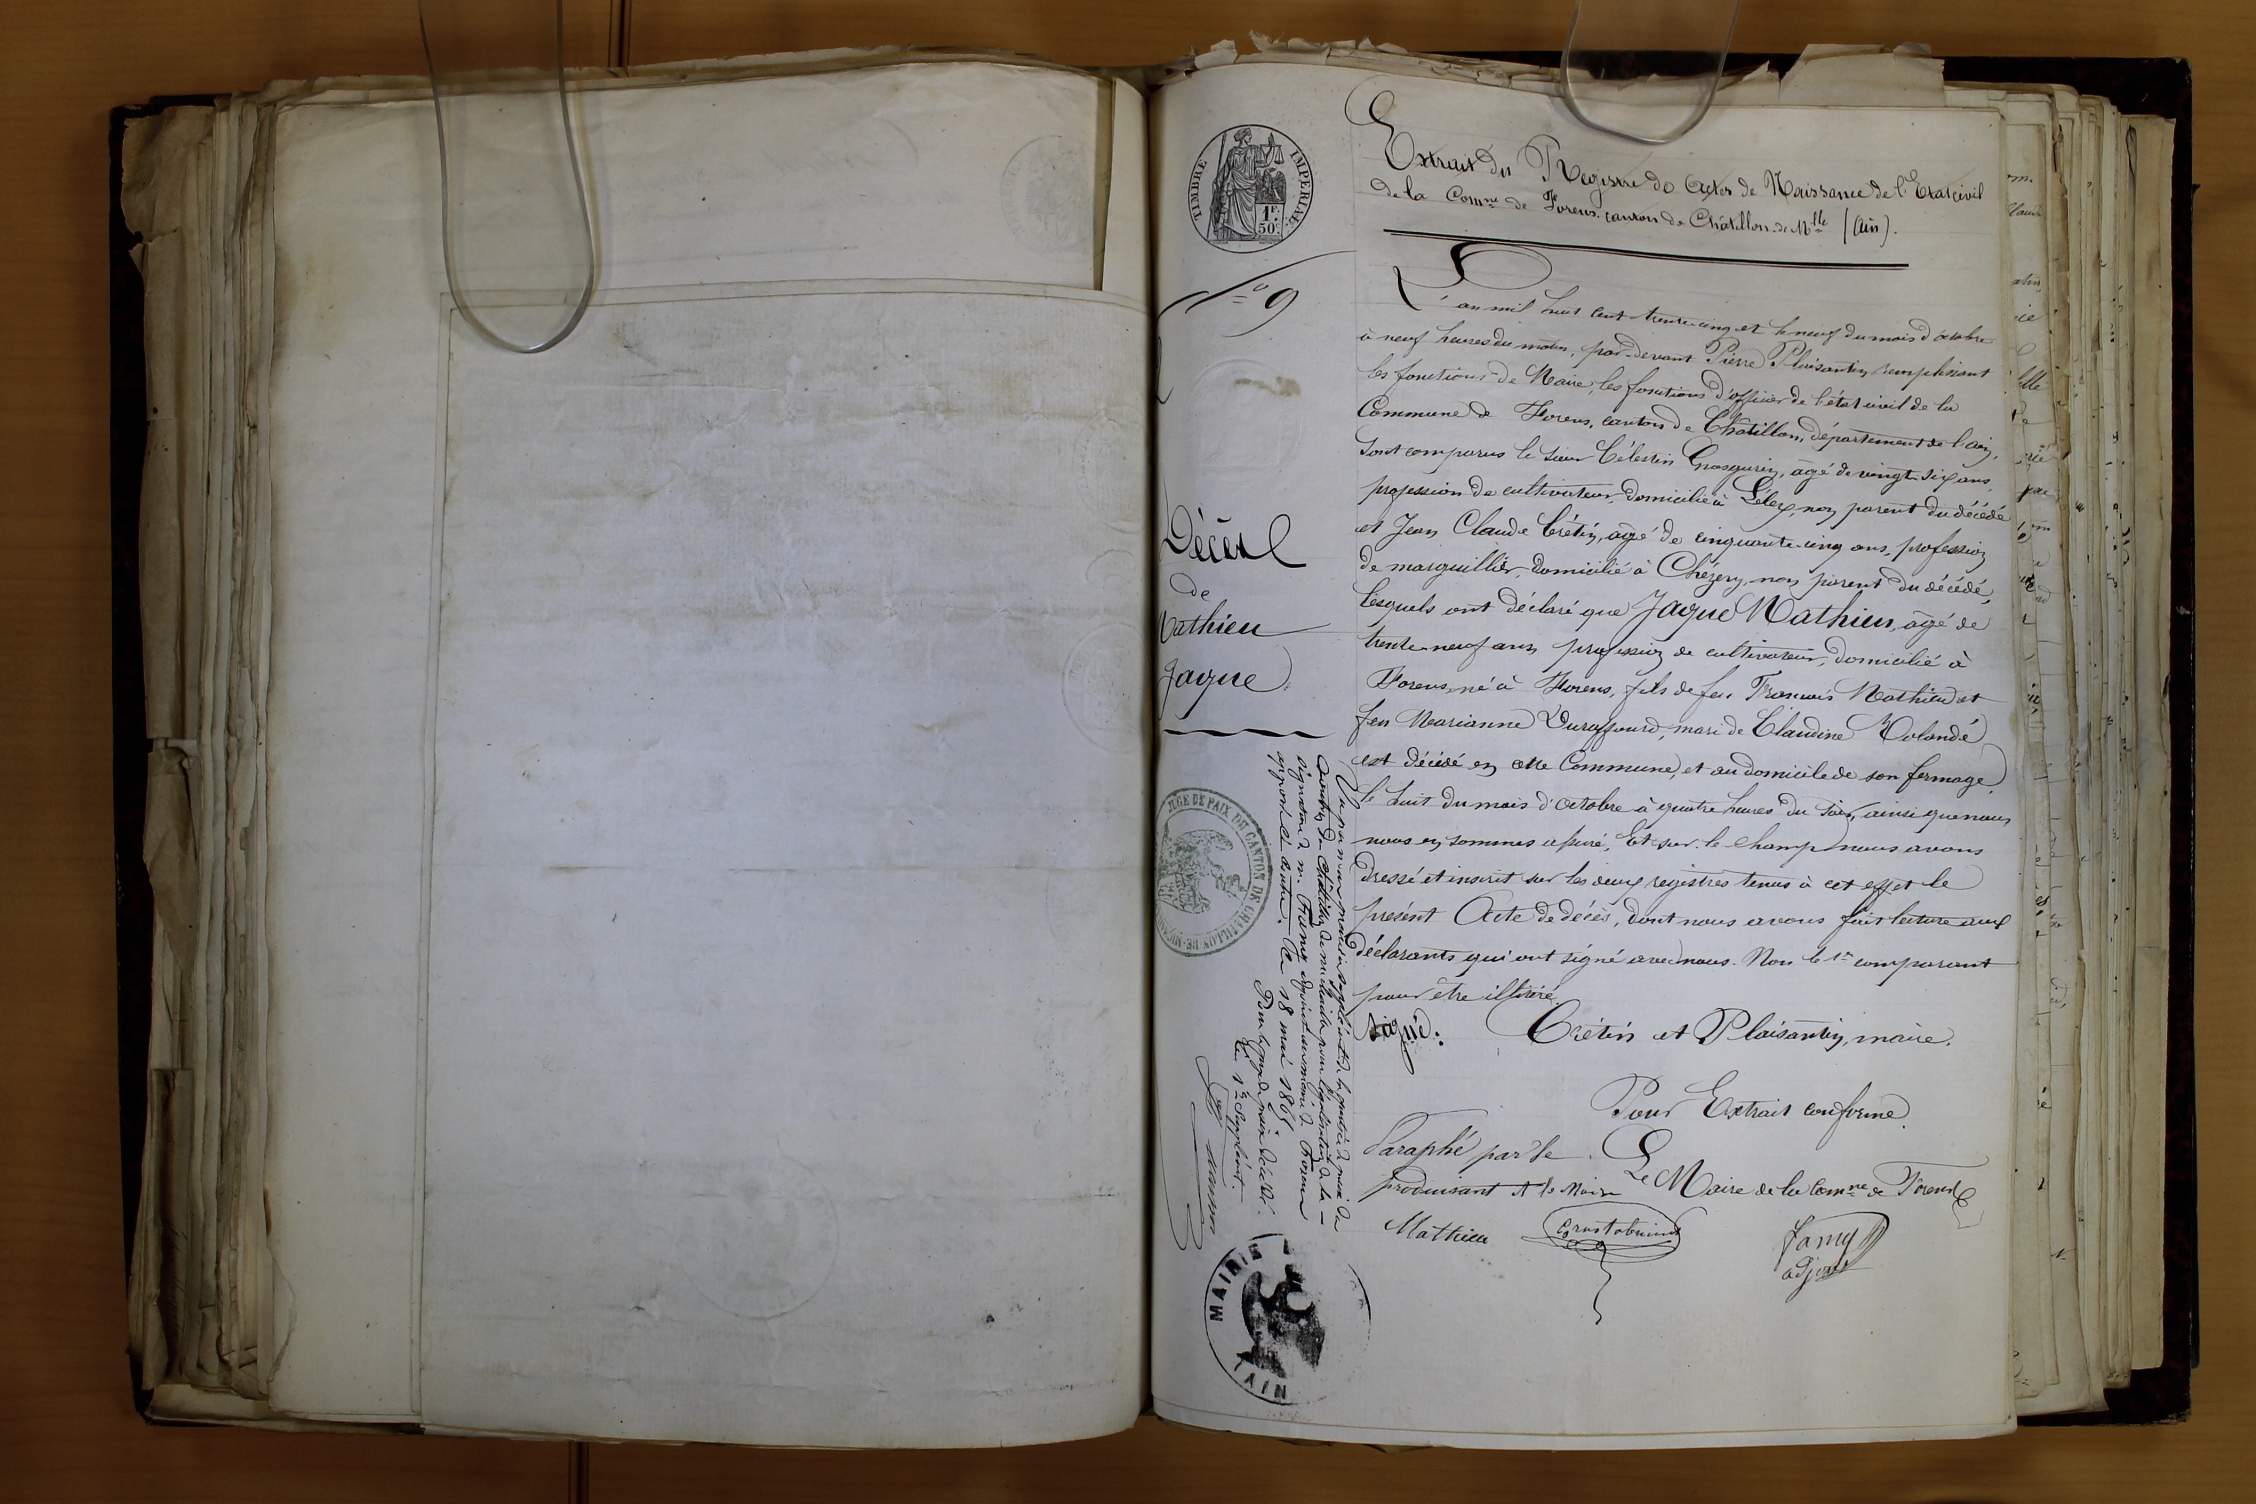 Extrait du Registre de Actes de Naissance de l'Etat civil
de la Comne de Forens, canton de Châtillon de Mlle (Ain).
TIMBRE IMPERIAL
1F. 50c.
No 9
Décès
de
Mathieu
Jaque
L'an mil huit cent trente-cinq et le neuf du mois d'octobre
à neuf heures du matin, par-devant Pierre Plaisantin remplissant
les fonctions de Maire, les fonctions d'officier de l'état civil de la
Commune de Forens, canton de Châtillon, département de l'ain,
Sont comparus le sieur Célestin Grosgurin, âgé de vingt-six ans,
profession de cultivateur, domicilié à Lélex, non parent du décédé
et Jean Claude Crétin, âgé de cinquante-cinq ans, profession
de marguillier, domicilié à Chézery, non parent du décédé,
Lesquels ont déclaré que Jaque Mathieu, âgé de
trente-neuf ans, profession de cultivateur, domicilié à
Forens, né à Forens, fils de feu François Mathieu et
feu Marianne Duraffourd, mari de Claudine Rolandé,
est décédé en cette Commune, et au domicile de son fermage,
le huit du mois d'octobre à quatre heures du soir, ainsi que nous
nous en sommes assuré, Et sur-le-champ nous avons
dressé et inscrit sur les deux registres tenus à cet effet le
présent Acte de décès, dont nous avons fait lecture aux
déclarants qui ont signé avec nous. Non le 1er comparant
pour être illitéré.
Signé: Crétin et Plaisantin, maire.
Pour Extrait conforme.
Le Maire de la Comne de Forens
Famy
adjoint
Paraphé par le
produisant et le Maire
Mathieu Grostabussiat
Vu par nous premier suppléant de la justice de paix du
canton de Châtillon de michaille pour légalisation de la
signature de m. Famy adjoint au maire de Forens
apposée ci-contre. Ce 18 mai 1865
Pour le juge de paix décédé.
Le 1er Suppléant.
JUGE DE PAIX DU CANTON DE CHATILLON-DE-MICHAILLE
MAIRIE
AIN